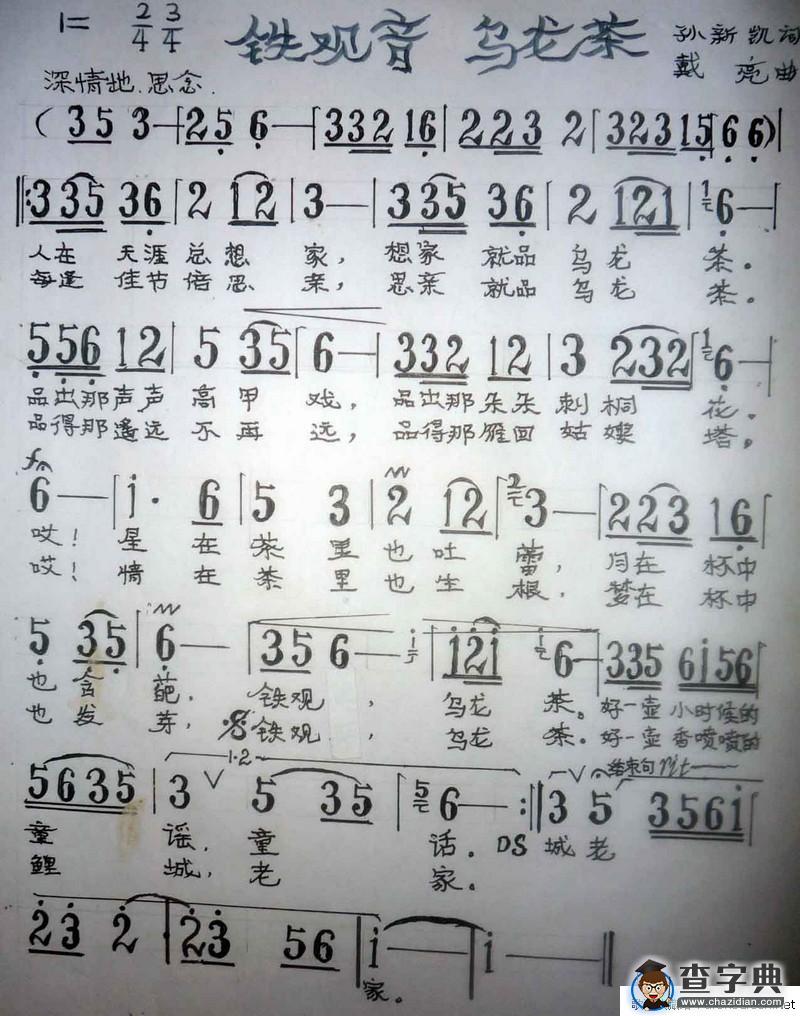 1= 2/4 3/4 铁观音 乌龙茶 孙新凯词
戴亮曲
深情地.思念.
( 35 3—|25 6—|332 16|2223 2|32315|6 6)|
‖:335 36|2 12|3—|335 36|2 121|6—|
人在 天涯总想 家, 想家 就品 乌龙 茶。
每逢 佳节倍思 亲, 思亲 就品 乌龙 茶.
556 12|5 35|6—|332 12|3 232|6—|
品出那声声 高甲 戏, 品出那朵朵 刺桐 花.
品得那遥远 不再 远, 品得那雁回 姑嫂 塔,
6—|i· 6|5 3|2 12|3—|223 16|
哎! 星 在 茶 里 也吐 蕾, 月在 杯中
哎! 情 在 茶 里 也生 根, 梦在 杯中
5 35|6—|35 6—|i2i 6—|335 6i56|
也含 葩. 铁观 , 乌龙 茶。好一壶 小时候的
也发 芽, 铁观 , 乌龙 茶.好一壶 香喷喷的
1·2 结束句 rit
5635|3 5 35|6—:‖3 5 356i|
童 谣, 童 话。 DS 城老
鲤 城, 老 家。
23 2|23 56|i—|i—‖
家。
查字典
www.chazidian.com